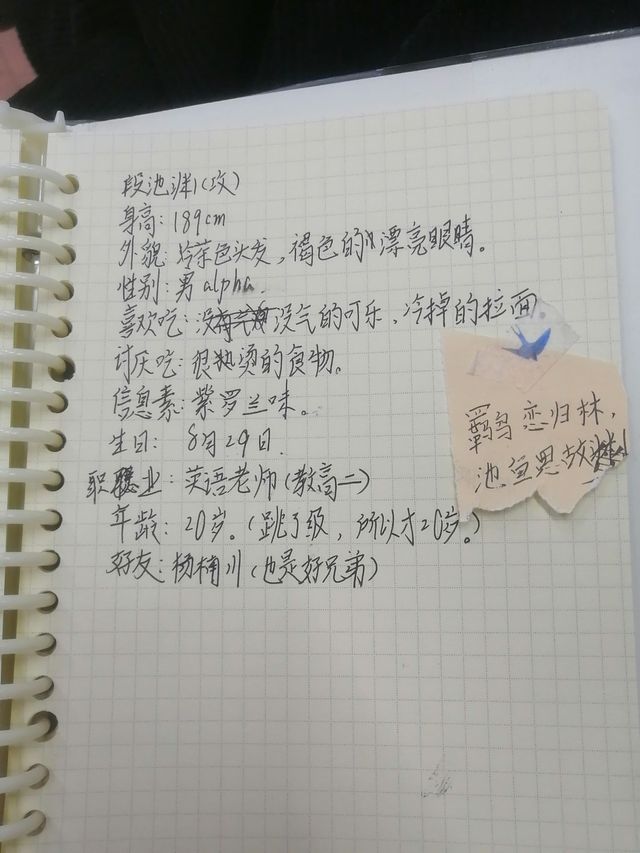 段池渊(攻)
身高：189cm
外貌：冷茶色头发，褐色的漂亮眼睛。
性别：男alpha.
喜欢吃：没气的可乐、冷掉的拉面
讨厌吃：很烫的食物。
信息素：紫罗兰味。
生日：8月29日.
职业：英语老师(教高二)
年龄：20岁。(跳了级，所以才20岁。)
好友：杨楠川(也是好兄弟)
羁鸟恋归林，
池鱼思故渊